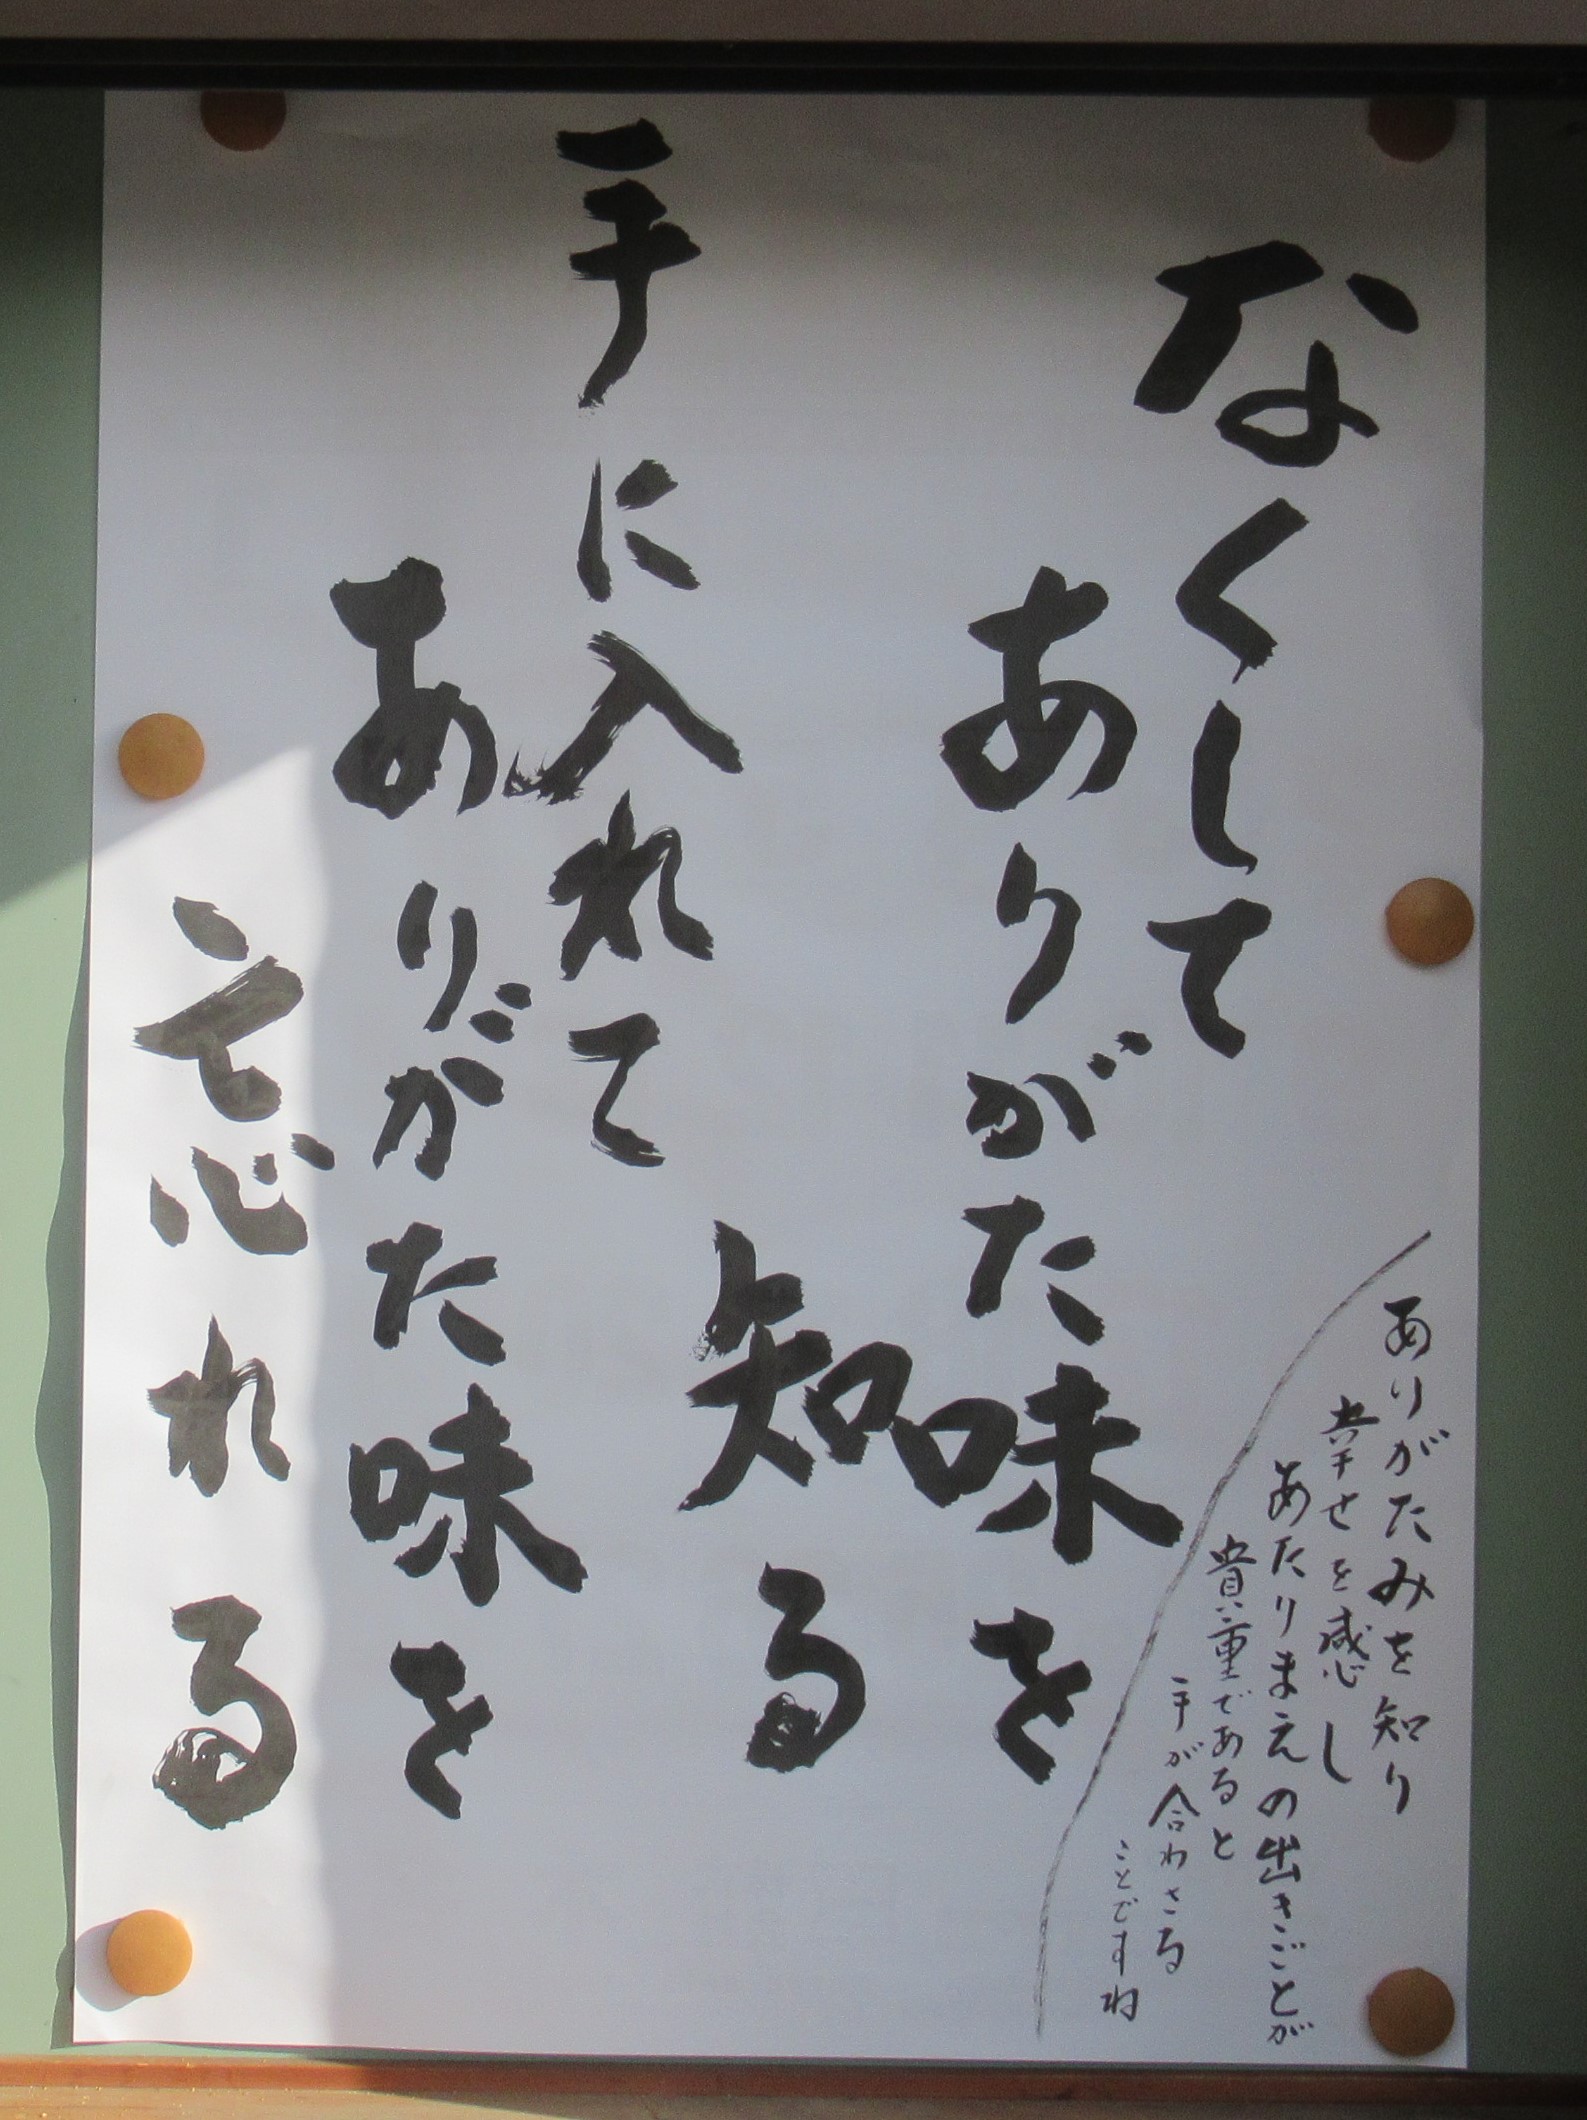 なくして
ありがた味を
知る
手に入れて
ありがた味を
忘れる
ありがたみを知り
幸せを感し
あたりまえの出きごとが
貴重であると
手が合わさる
ことですね